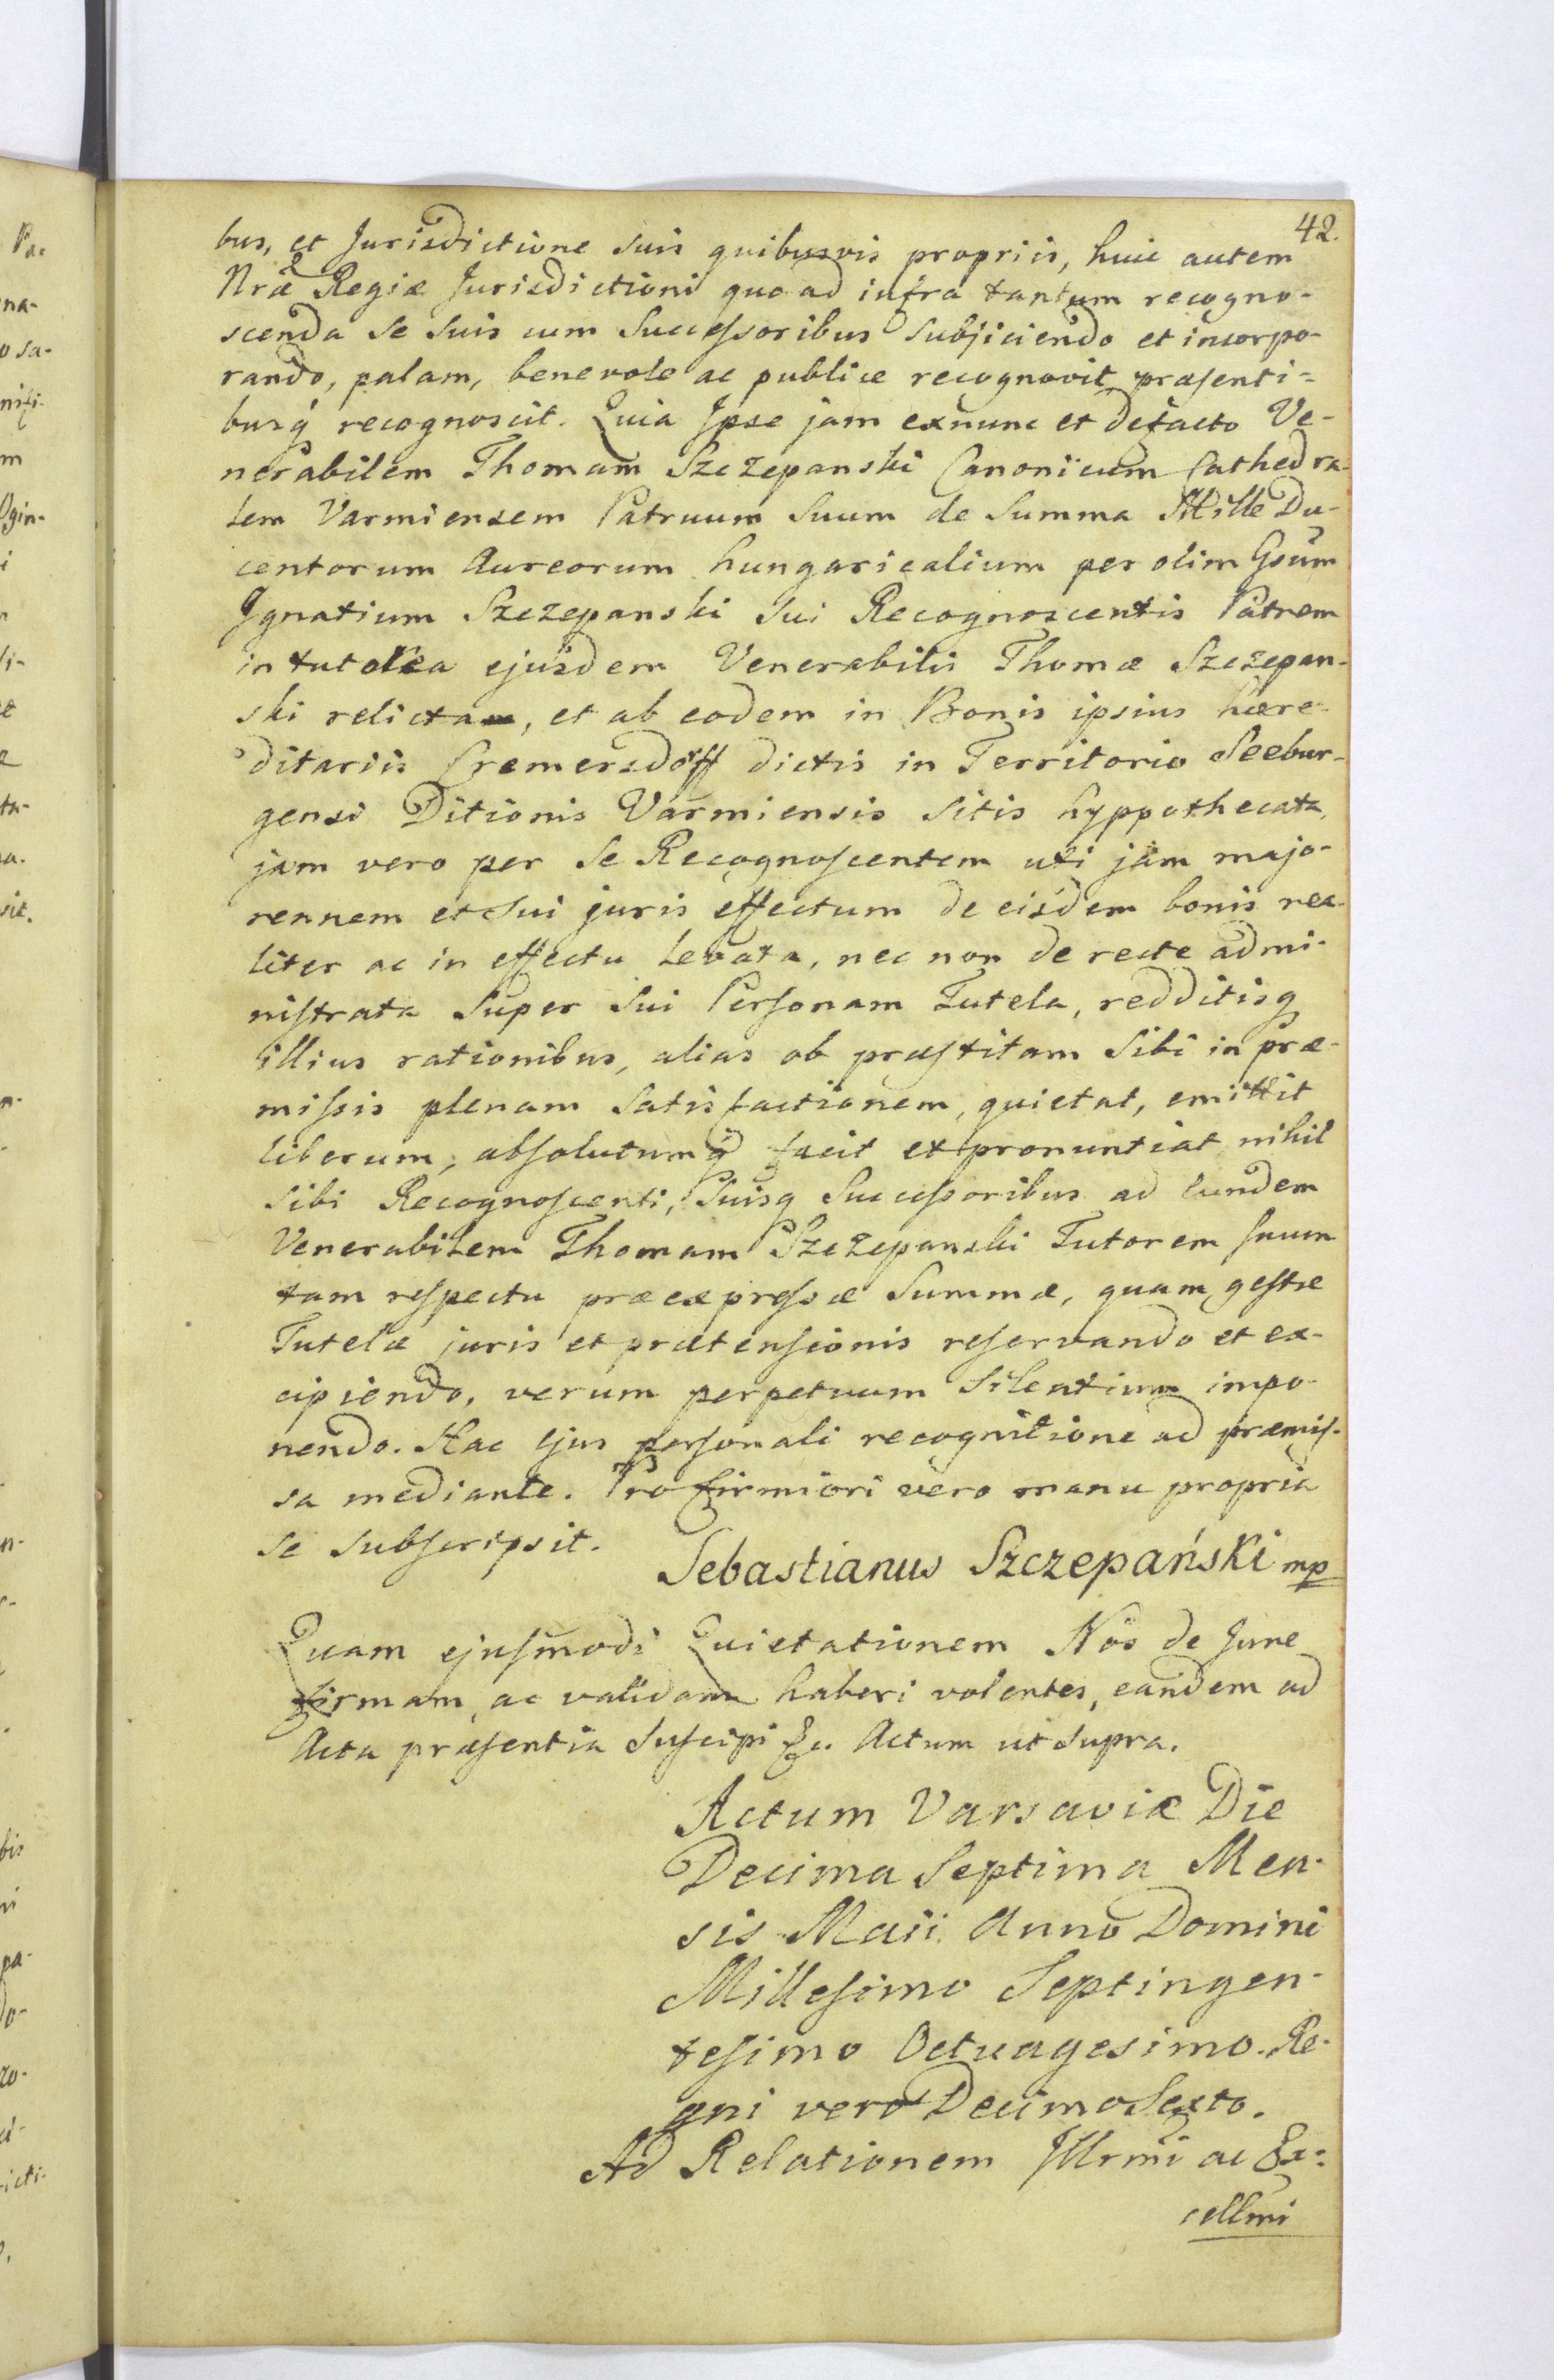 42.
bus, et Jurisdictione suis quibusvis propriis, huic autem
Nræ Regiæ Jurisdictioni quoad infra tantum recogno-
scenda se suis cum Successoribus subjiciendo et incorpo-
rando, palam, benevole ac publice recognovit præsenti-
busq recognoscit. Quia Ipse jam exnunc et defacto Ve-
nerabilem Thomam Szczepanski Canonicum Cathedra-
lem Varmiensem Patruum Suum de Summa Mille Du-
centorum Aureorum hungaricalium per olim Gsum
Ignatium Szczepanski sui Recognoscentis Patrem
in tutolea ejusdem Venerabilis Thomæ Szczepan-
ski relicta, et ab eodem in Bonis ipsius hære-
ditariis Cremersdorff dictis in Territorio Seebur-
gensi Ditionis Varmiensis sitis hyppothecata,
jam vero per se Recognoscentem uti jam majo-
rennem et sui juris effectum de eisdem bonis rea-
liter ac in effectu levata, nec non de recte admi-
nistrata super sui Personam Tutela, redditisq
illius rationibus, alias ob præstitam sibi in præ-
missis plenam satisfactionem, quietat, emittit
liberum, absolutumq facit et pronuntiat, nihil
sibi Recognoscenti, suisq Successoribus ad eundem
Venerabilem Thomam Szczepanski Tutorem suum
tam respectu præexpressæ Summæ, quam gestæ
Tutelæ juris et prætensionis reservando et ex-
cipiendo, verum perpetuum silentium impo-
nendo. Hac ejus personali recognitione ad præmis-
sa mediante. Pro firmiori vero manu propria
se subscripsit.
Sebastianus Szczepański mp
Quam ejusmodi Quietationem Nos de Jure
firmam, ac validam haberi volentes, eandem ad
Acta præsentia suscipi &c. Actum ut supra.
Actum Varsaviæ Die
Decima Septima Men-
sis Maii Anno Domini
Millesimo Septingen-
tesimo Octuagesimo. Re-
gni vero Decimo Sexto.
Ad Relationem Illrmi ac Ex-
cellmi